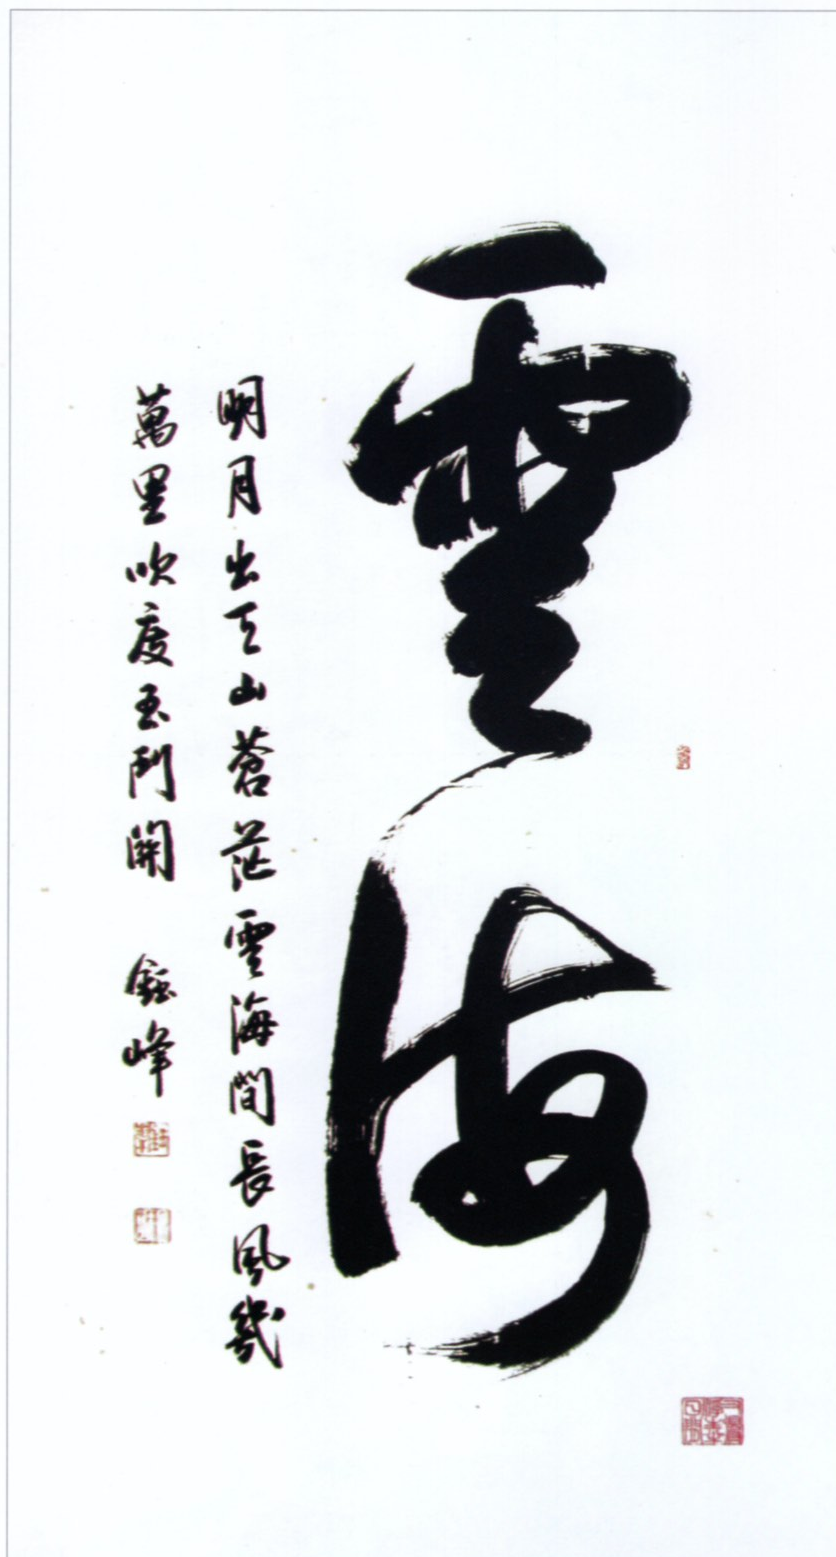 雲海
明月出天山蒼茫雲海間長風幾
萬里吹度玉門關 鈺峰